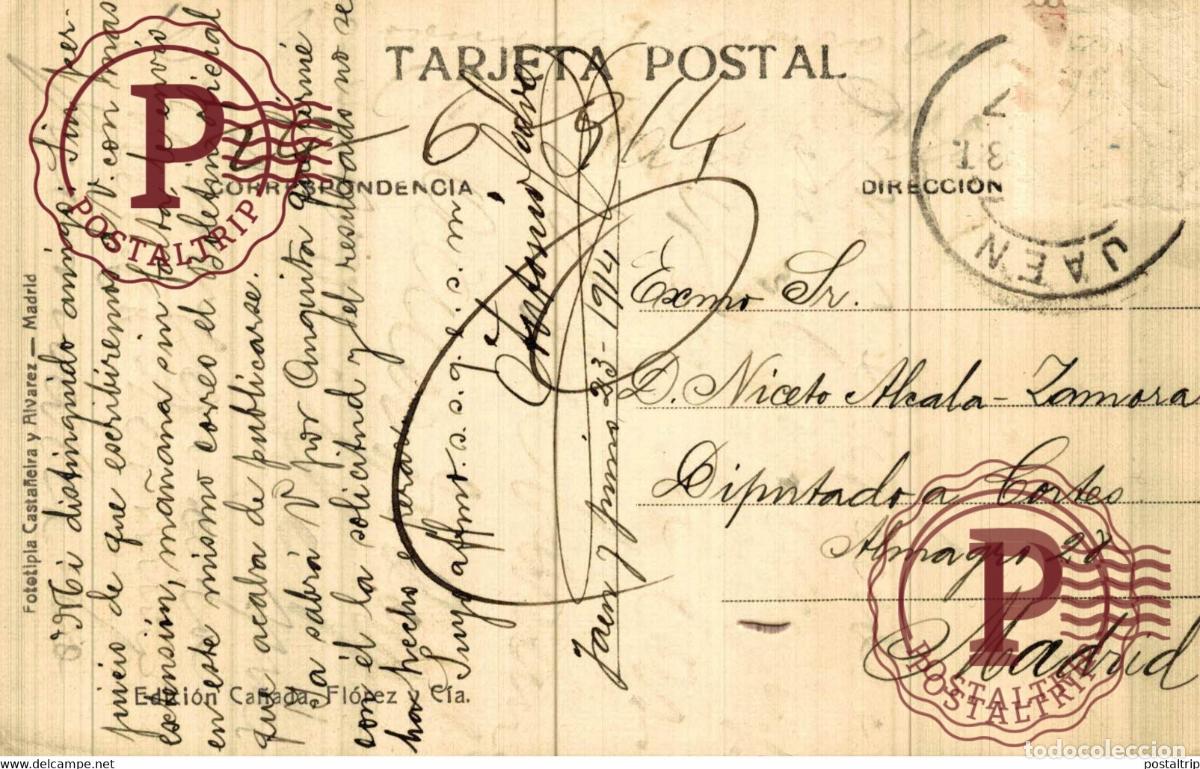 TARJETA POSTAL
CORRESPONDENCIA
DIRECCIÓN
Mi distinguido amigo: Sin per-
juicio de que escribiremos a V. con más
extensión, mañana sin falta, le envío
en este mismo correo el Boletín oficial
que acaba de publicarse.
Ya sabrá V. por Anguita que firmé
con él la solicitud y del resultado no se
ha hecho
Suyo affmo. s. s. q. e. s. m.
Antonio
Jaen y junio 23-1914
Exmo Sr.
D. Niceto Alcala-Zamora
Diputado a Cortes
Almagro
Madrid
JAEN
Fototipia Castañeira y Alvarez — Madrid
Edición Cañada, Flórez y Cía.
P
POSTALTRIP
P
POSTALTRIP
POSTALTRIP
todocoleccion
www.todocoleccion.net
postaltrip